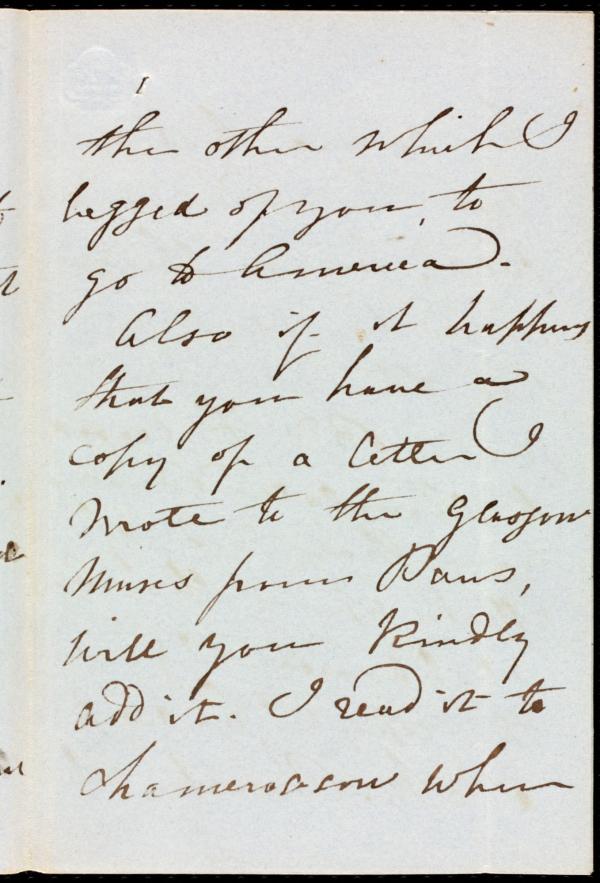 the other which I
begged of you, to
go to America.
Also if it happens
that you have a
copy of a letter I
wrote to the Glasgow
from Paris,
will you kindly
add it. I read it to
Chamerovzow when